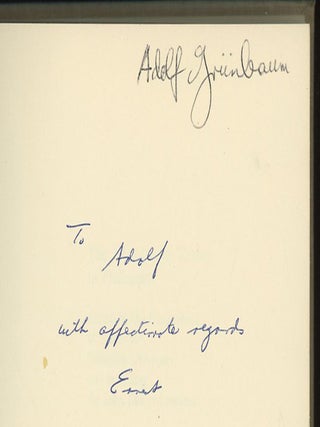 Adolf Grünbaum
To
Adolf
with affectionate regards
Ernest